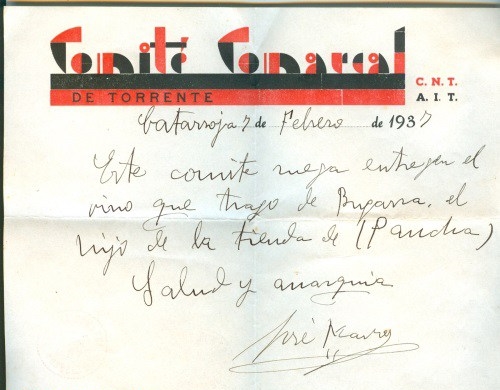 Comité Comarcal
DE TORRENTE
C.N.T.
A.I.T.
Catarroja 7 de Febrero de 1937
Este comite ruega entregen el
vino que trajo de Bugarra, el
hijo de la tienda de (Pancha)
Salud y anarquia
José